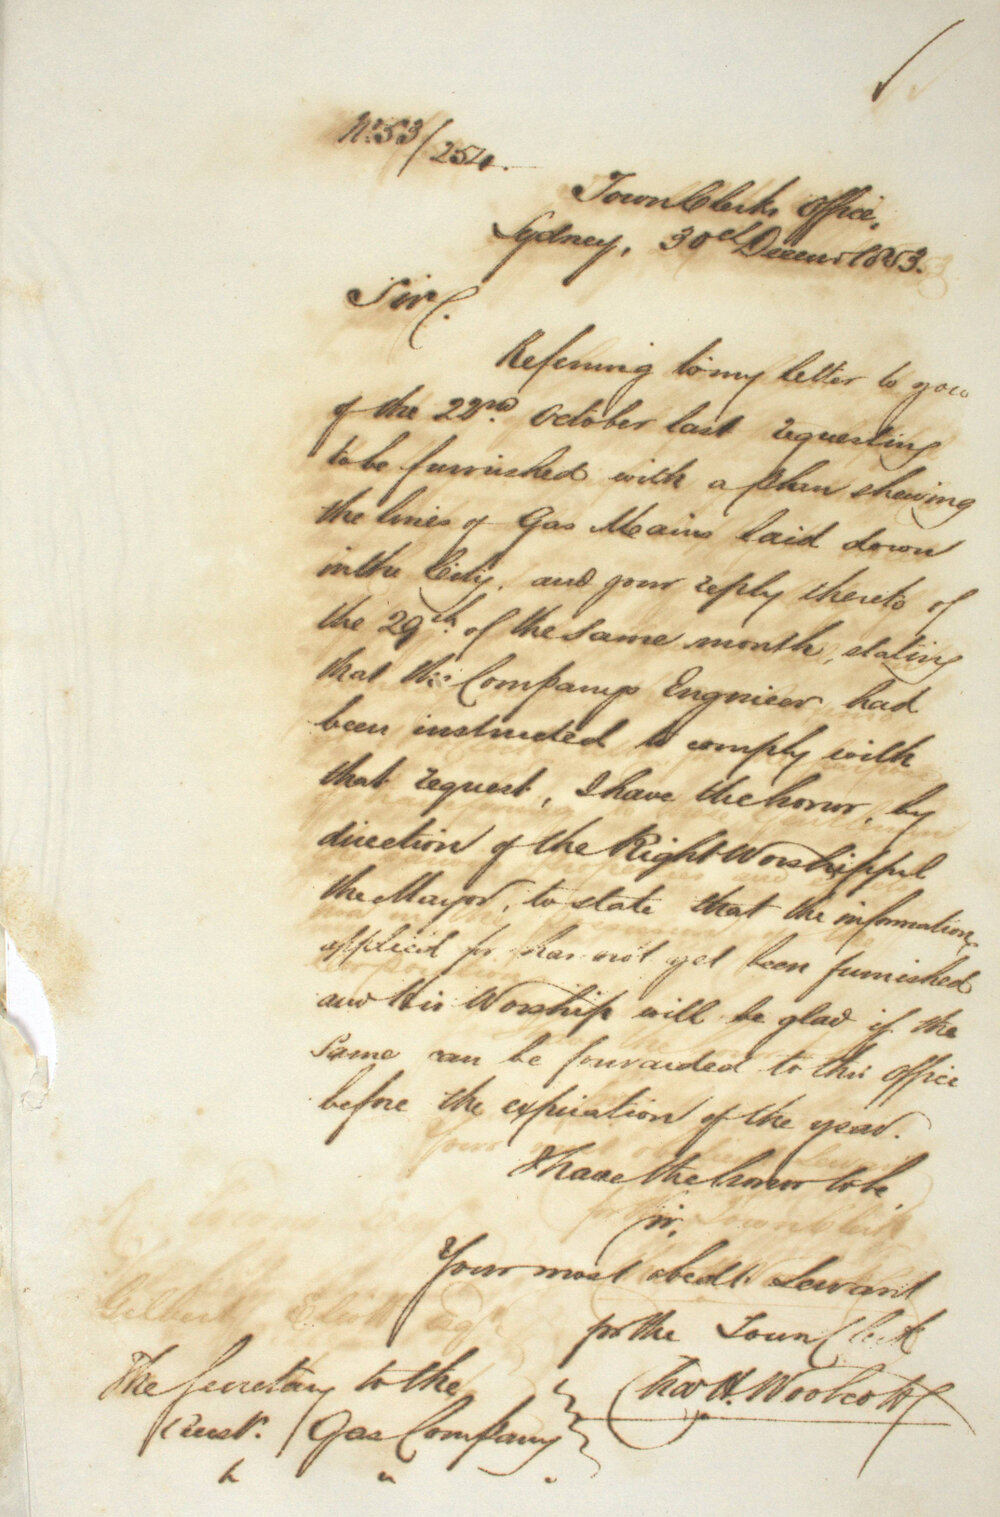 No. 53/254.
Town Clerks Office,
Sydney, 30th Decemr 1853.
Sir,
Referring to my letter to you
of the 22nd. October last requesting
to be furnished with a plan shewing
the lines of Gas Mains laid down
in the City, and your reply thereto of
the 29th. of the same month, stating
that the Companys Engineer had
been instructed to comply with
that request, I have the honor, by
direction of the Right Worshipful
the Mayor, to state that the information
applied for has not yet been furnished
and His Worship will be glad if the
same can be forwarded to this office
before the expiration of the year.
I have the honor to be,
Sir,
Your most obedt. Servant
for the Town Clerk
Chas H. Woolcott
The Secretary to the
Aust. Gas Company